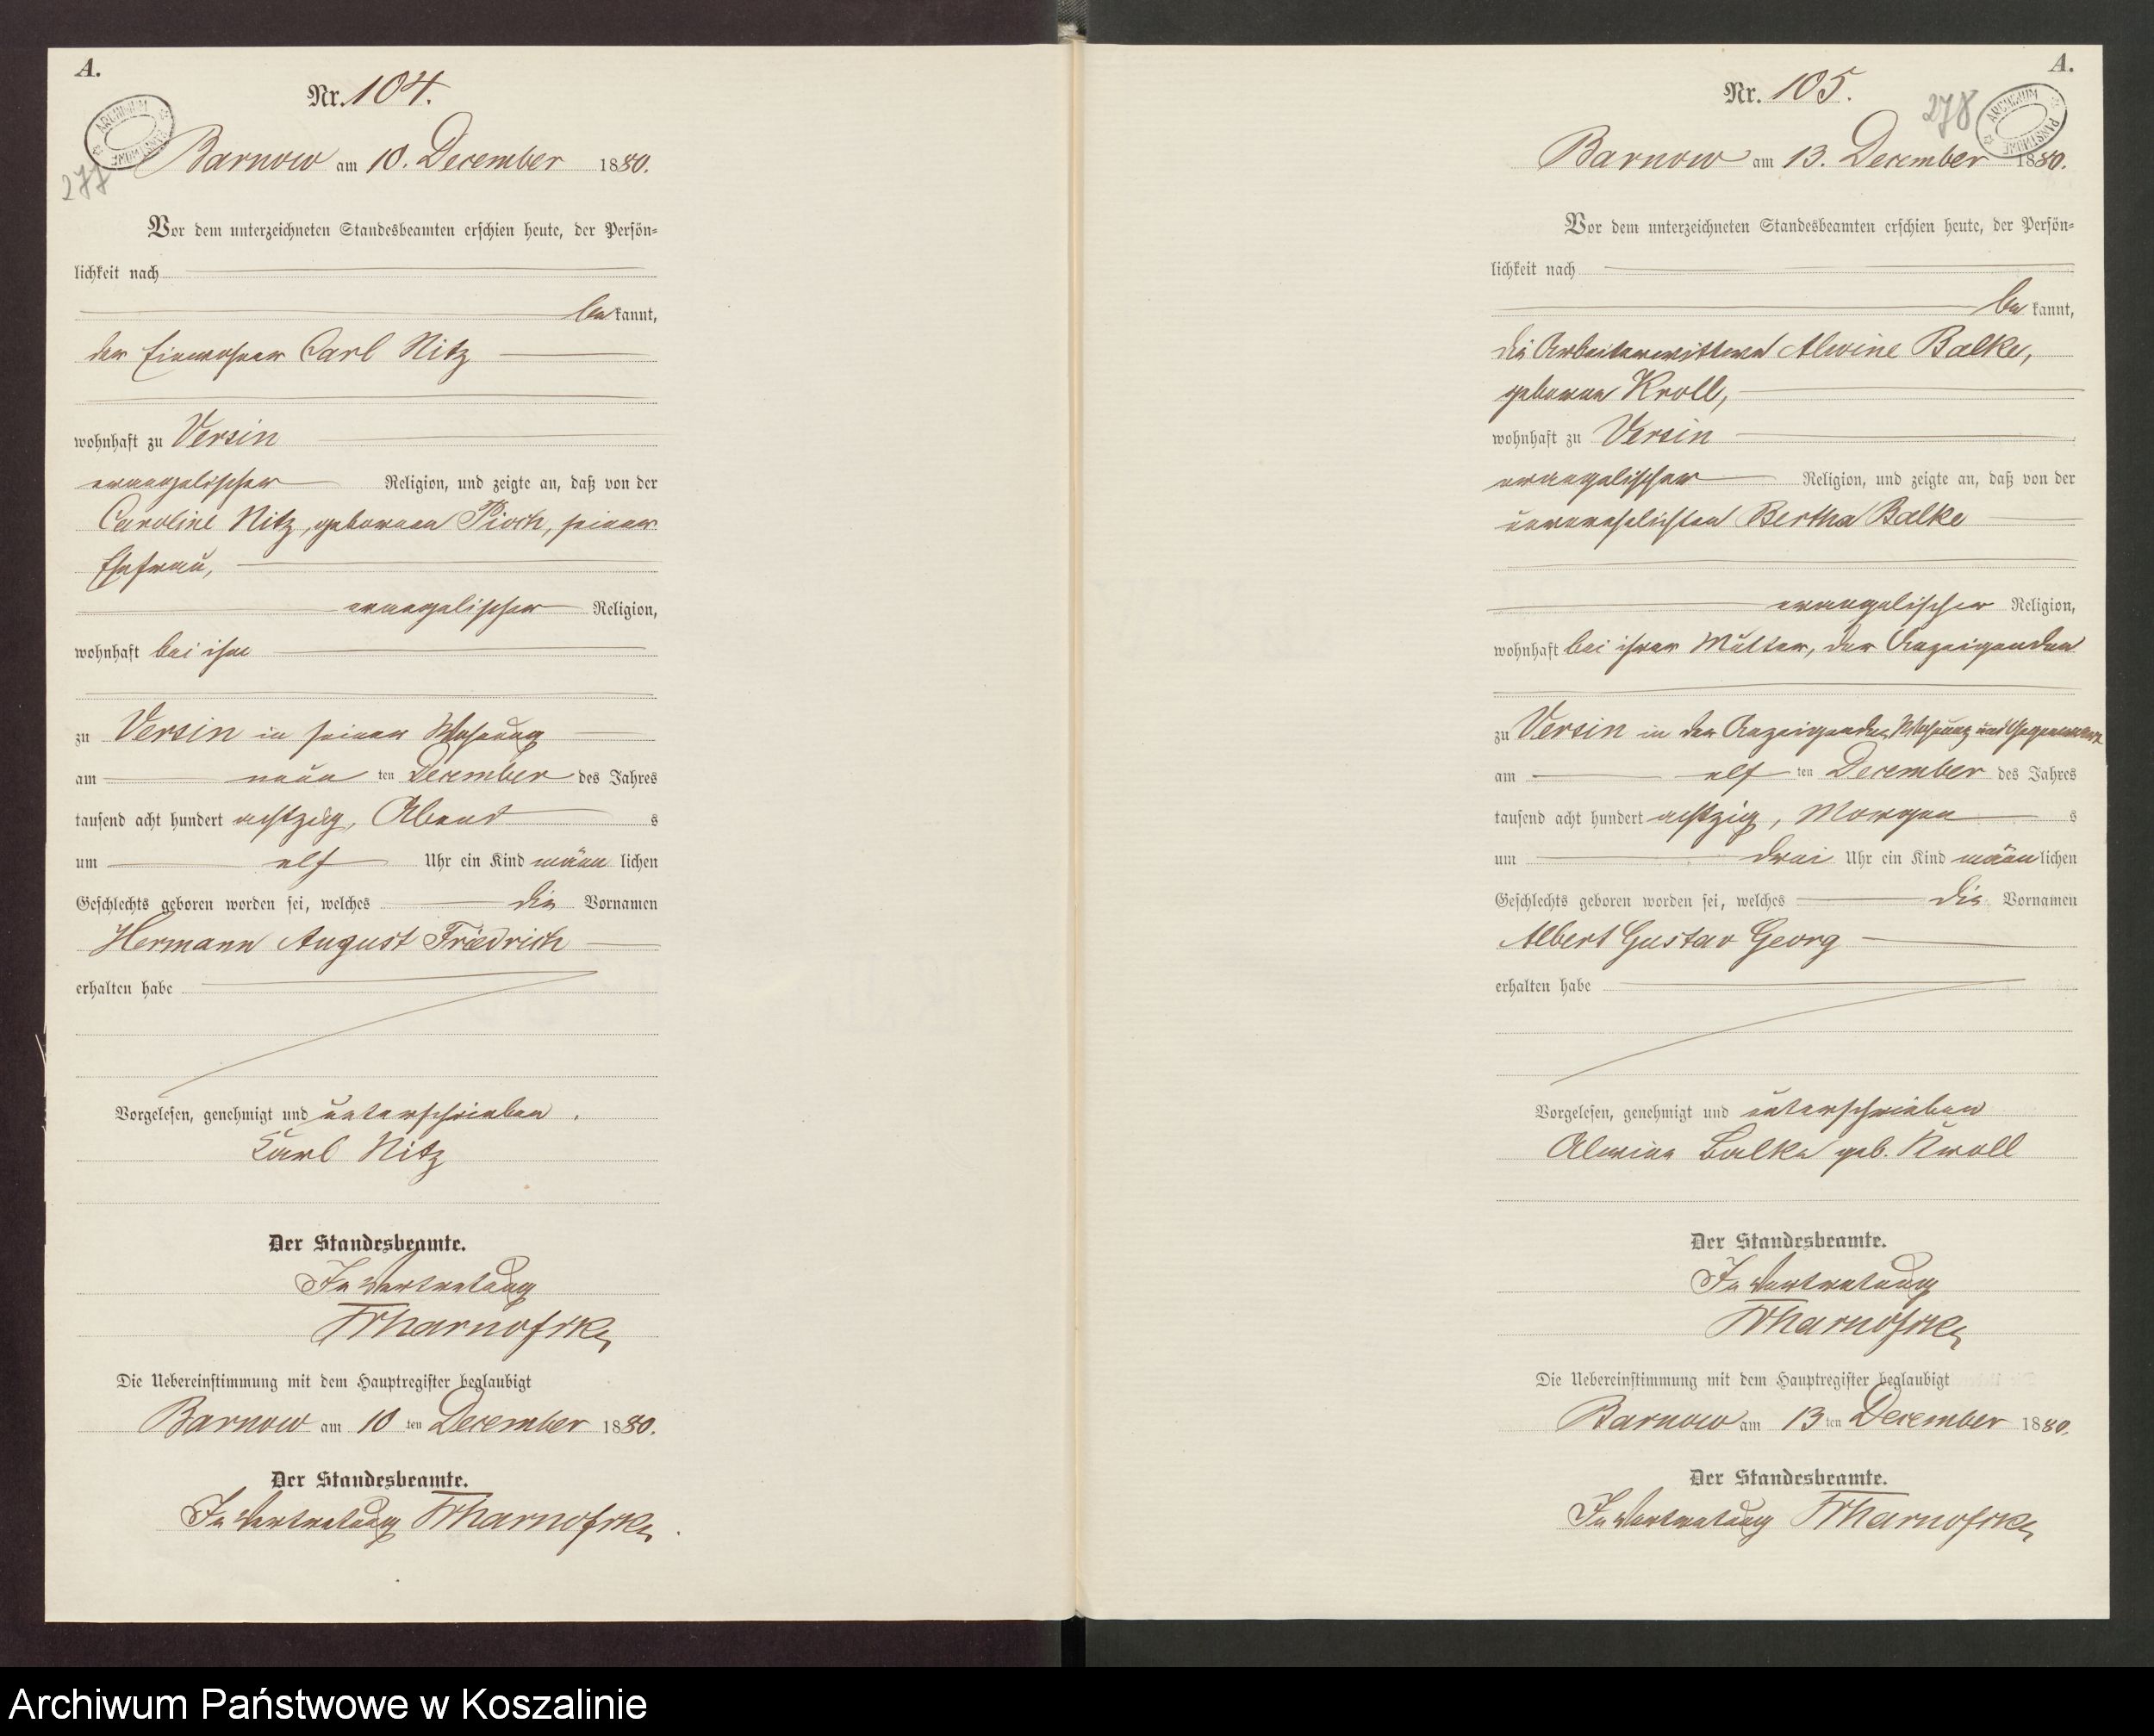 A.
Nr. 104.
ARCHIWUM PAŃSTWOWE
277
Barnow am 10. December 1880.
Vor dem unterzeichneten Standesbeamten erschien heute, der Persön-
lichkeit nach
bekannt,
der Einwohner Carl Nitz
wohnhaft zu Versin
evangelischer Religion, und zeigte an, daß von der
Caroline Nitz, geborenen Pioch, seiner
Ehefrau,
evangelischer Religion,
wohnhaft bei ihm
zu Versin in seiner Wohnung
am neun ten December des Jahres
tausend acht hundert achtzig, Abend s
um elf Uhr ein Kind männlichen
Geschlechts geboren worden sei, welches die Vornamen
Hermann August Friedrich
erhalten habe
Vorgelesen, genehmigt und unterschrieben.
Carl Nitz
Der Standesbeamte.
In Vertretung
Die Uebereinstimmung mit dem Hauptregister beglaubigt
Barnow am 10 ten December 1880.
Der Standesbeamte.
In Vertretung
A.
Nr. 105.
278
ARCHIWUM PAŃSTWOWE
Barnow am 13. December 1880.
Vor dem unterzeichneten Standesbeamten erschien heute, der Persön-
lichkeit nach
bekannt,
die Arbeiterwittwe Alwine Balke,
geborene Kroll,
wohnhaft zu Versin
evangelischer Religion, und zeigte an, daß von der
unverehelichten Bertha Balke
evangelischer Religion,
wohnhaft bei ihrer Mutter, der Anzeigenden
zu Versin in der Anzeigenden Wohnung und Gegenwart
am elf ten December des Jahres
tausend acht hundert achtzig, Morgen s
um drei Uhr ein Kind männlichen
Geschlechts geboren worden sei, welches die Vornamen
Albert Gustav Georg
erhalten habe
Vorgelesen, genehmigt und unterschrieben
Alwine Balke geb. Kroll
Der Standesbeamte.
In Vertretung
Die Uebereinstimmung mit dem Hauptregister beglaubigt
Barnow am 13 ten December 1880.
Der Standesbeamte.
In Vertretung
Archiwum Państwowe w Koszalinie